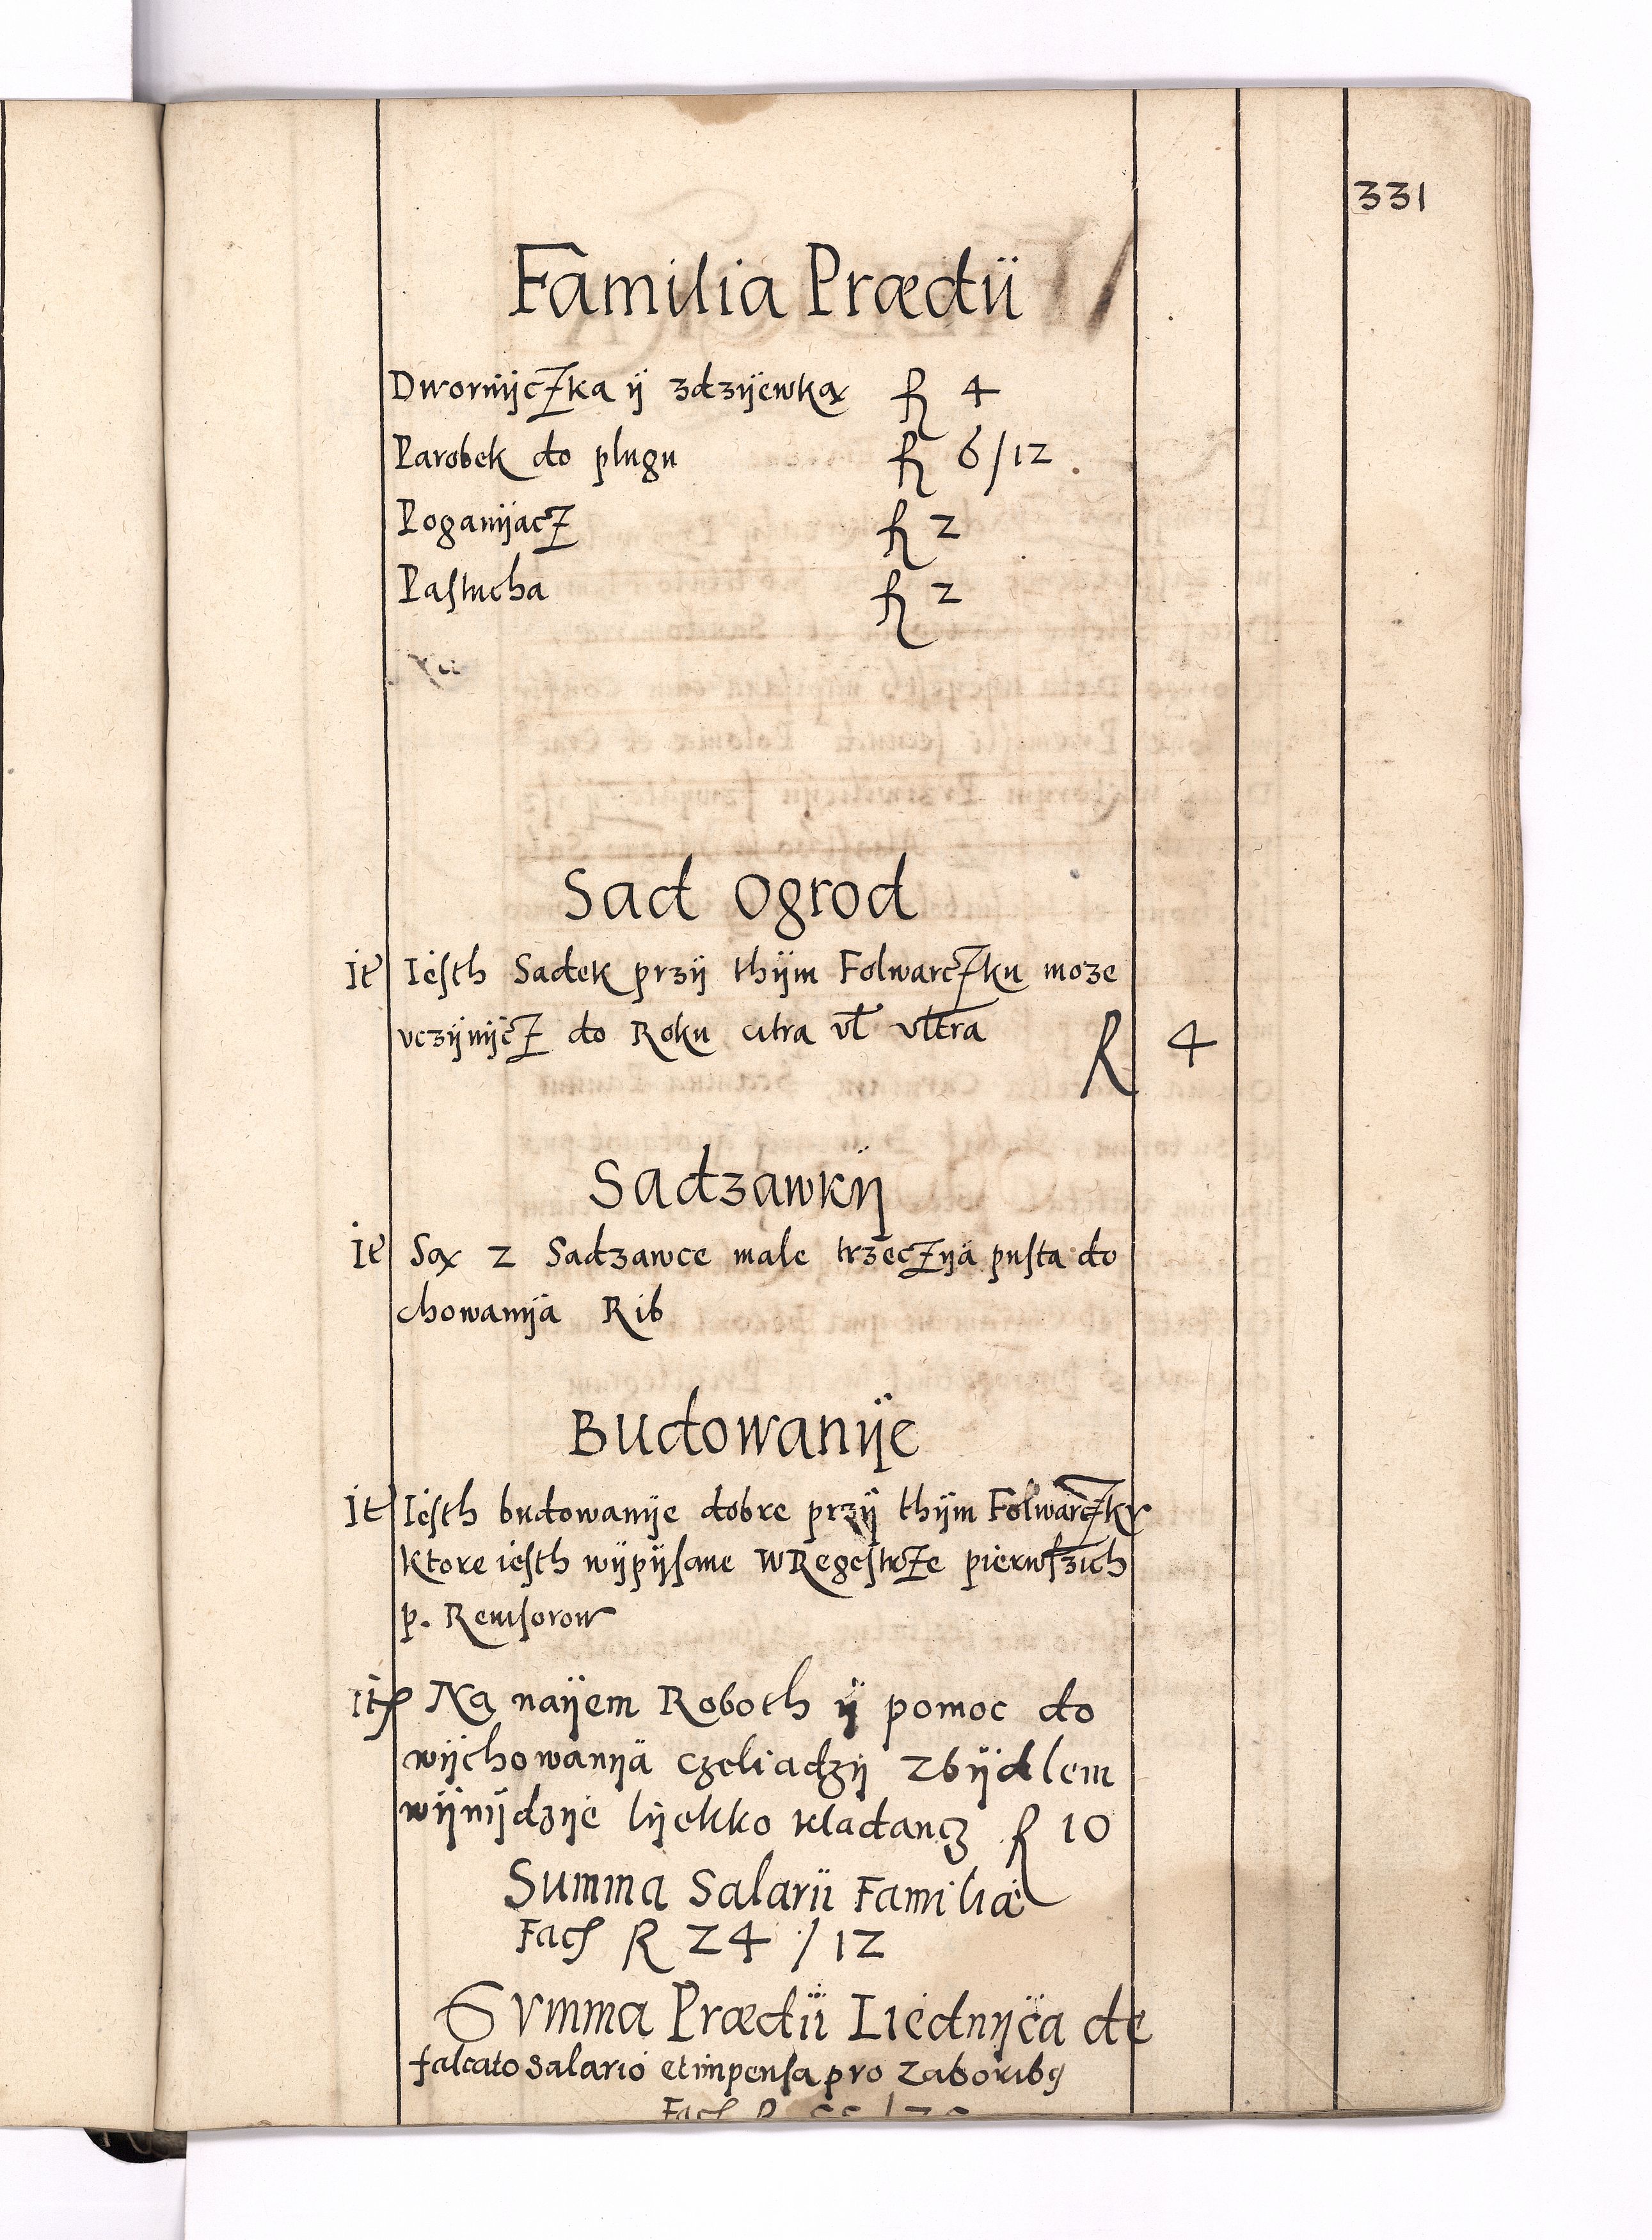 331
Familia Prædii
Dwornÿczka ÿ zdzÿewką ƒ 4
Parobek do plugu ƒ 6/12.
Poganÿacz ƒ 2
Pastucha ƒ 2
Sad ogrod
it Iesth Sadek przÿ thÿm Folwarczku moze
vczÿnÿcz do Roku citra vl vltra ƒ 4
Sadzawkÿ
it Są 2 Sadzawce male trzeczÿa pusta do
chowanÿa Rib
Budowanÿe
it Iesth budowanÿe dobre przÿ thÿm Folwarczku
ktore iesth wÿpÿsane w Regestrze pierwszich
p. Rewisorow
it Na naÿem Roboth ÿ pomoc do
wÿchowanÿa czeliadzÿ z bÿdlem
wÿnÿdzÿe lÿekko kladancz ƒ 10
Summa Salarii Familiæ
Fac ƒ 24 / 12
Svmma Prædii Liednÿca de
falcato salario et impensa pro